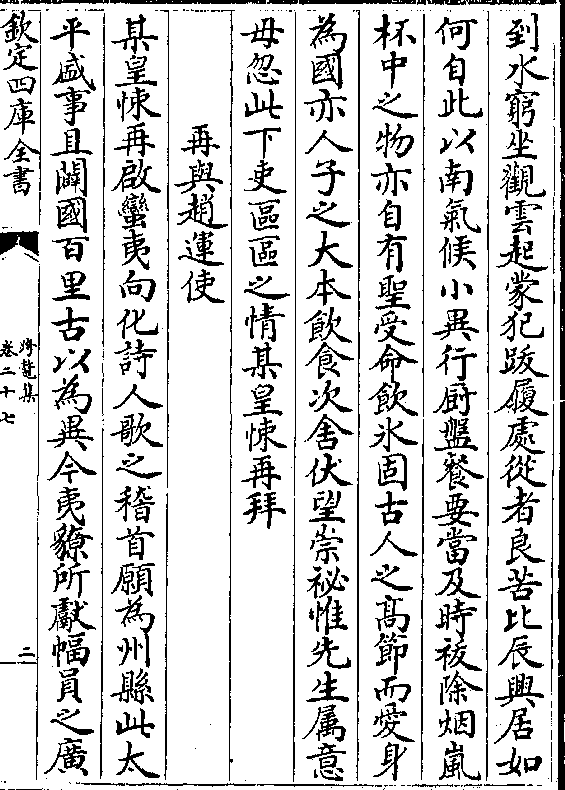 到水窮坐觀雲起蒙犯跋履處從者良苦比辰興居如
何自此以南氣候小異行厨盤餐要當及時祓除烟嵐
杯中之物亦自有聖受命飲氷固古人之髙節而愛身
為國亦人子之大本飲食次舍伏望崇祕惟先生属意
毋忽此下吏區區之情某皇悚再拜
再與趙運使
某皇悚再啟蠻夷向化詩人歌之稽首願為州縣此太
平盛事且闢國百里古以為異今夷獠所獻幅員之廣
欽定四庫全書
跨鼇集
卷二十七
二